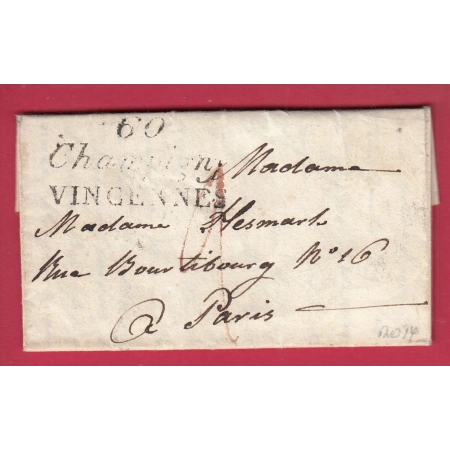 60
Champigny
VINCENNES
Madame
Madame Hesmart
Rue Bourtibourg N° 16
a Paris